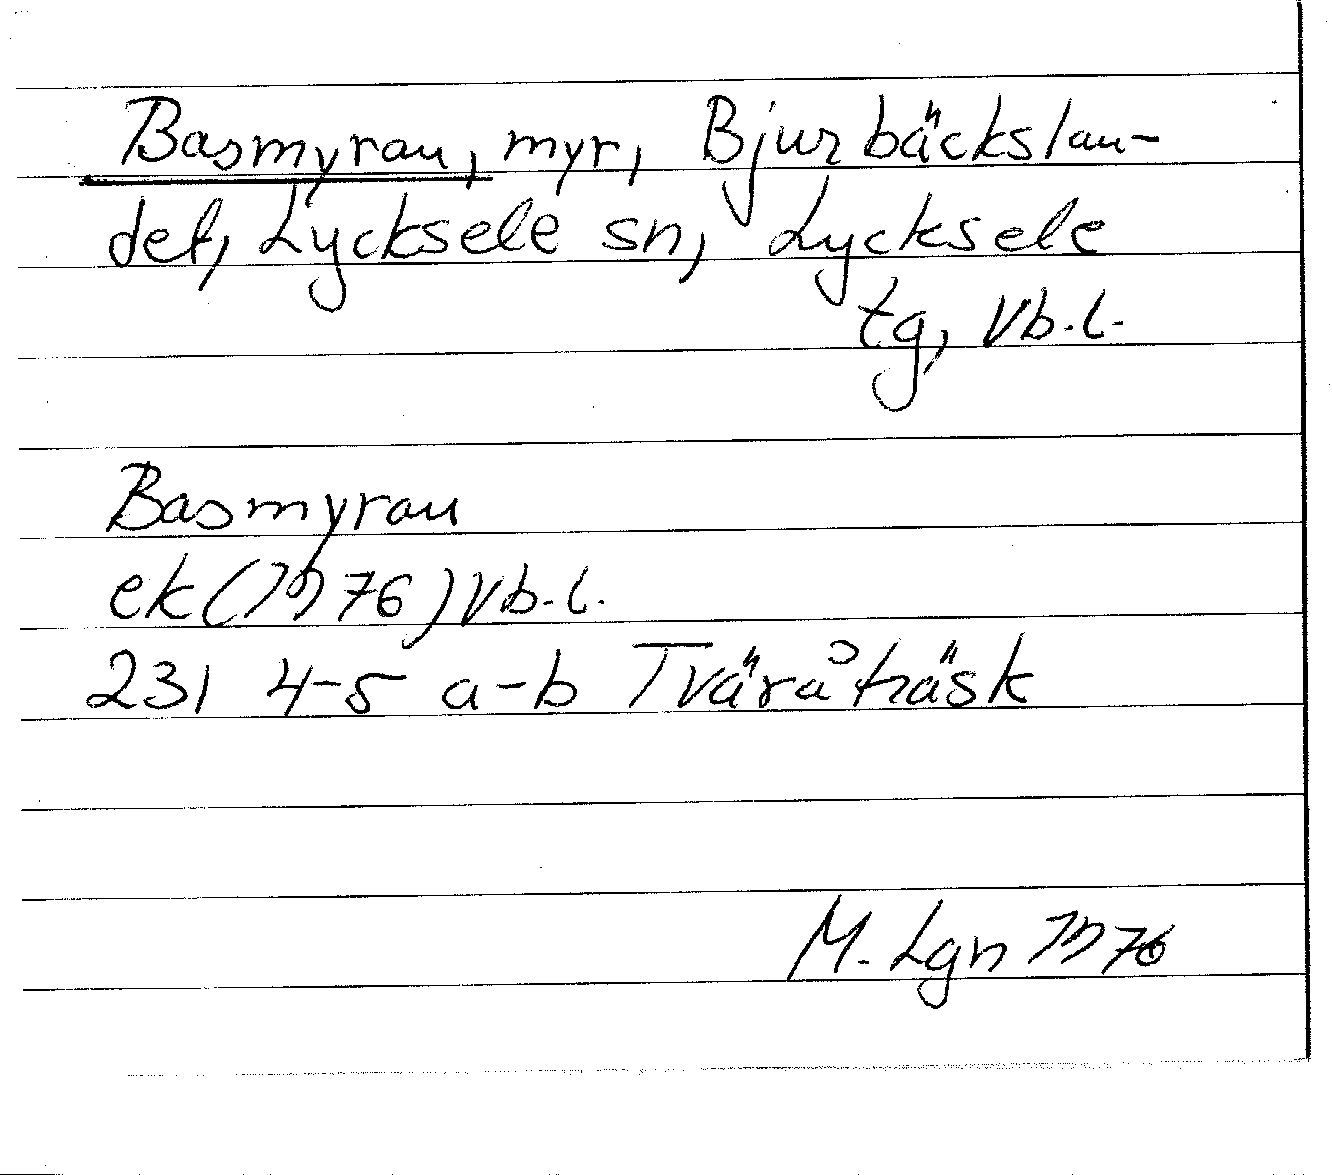 Basmyran, myr, Bjurbäckslan-
det, Lycksele sn, Lycksele
tg, Vb.l.
Basmyran
ek (1976) Vb.l.
231 4-5 a-b Tväråträsk
M. Lgn 1976